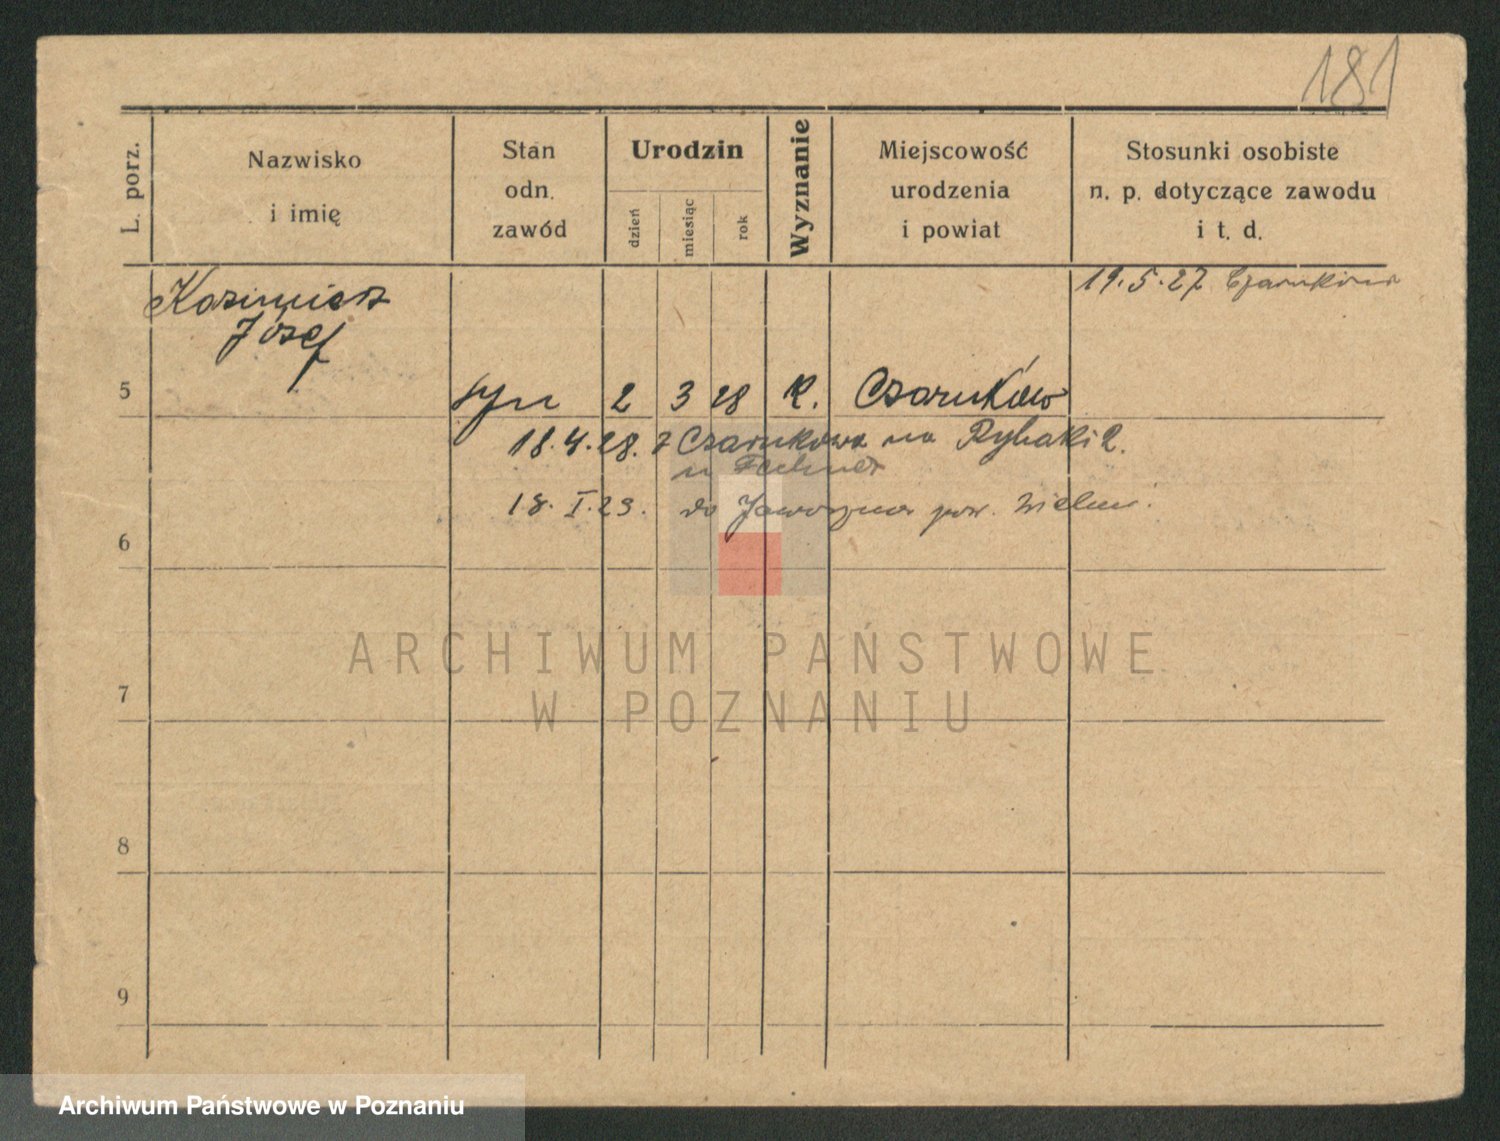 181
L. porz.
Nazwisko
i imię
Stan
odn.
zawód
Urodzin
dzień
miesiąc
rok
Wyznanie
Miejscowość
urodzenia
i powiat
Stosunki osobiste
n. p. dotyczące zawodu
i t. d.
19.5.27
Kazimierz
Józef
5 syn 2 3 28 R. Czarnków
18.4.28. z Czarnkowa na Rybaki 2.
18.I.29. do Jaworzna pow.
6
7
8
9
ARCHIWUM PAŃSTWOWE
W POZNANIU
Archiwum Państwowe w Poznaniu